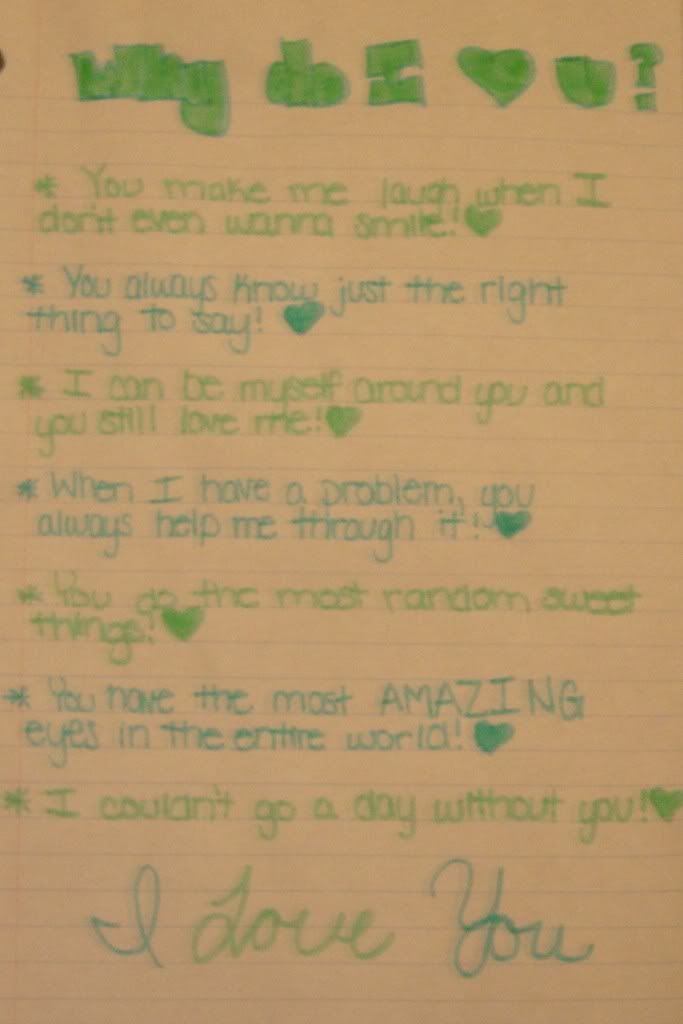 Why do I ♥ U?
* You make me laugh when I
don't even wanna smile! ♥
* You always know just the right
thing to say! ♥
* I can be myself around you and
you still love me! ♥
* When I have a problem, you
always help me through it! ♥
* You do the most random sweet
things! ♥
* You have the most AMAZING
eyes in the entire world! ♥
* I couldn't go a day without you! ♥
I Love You